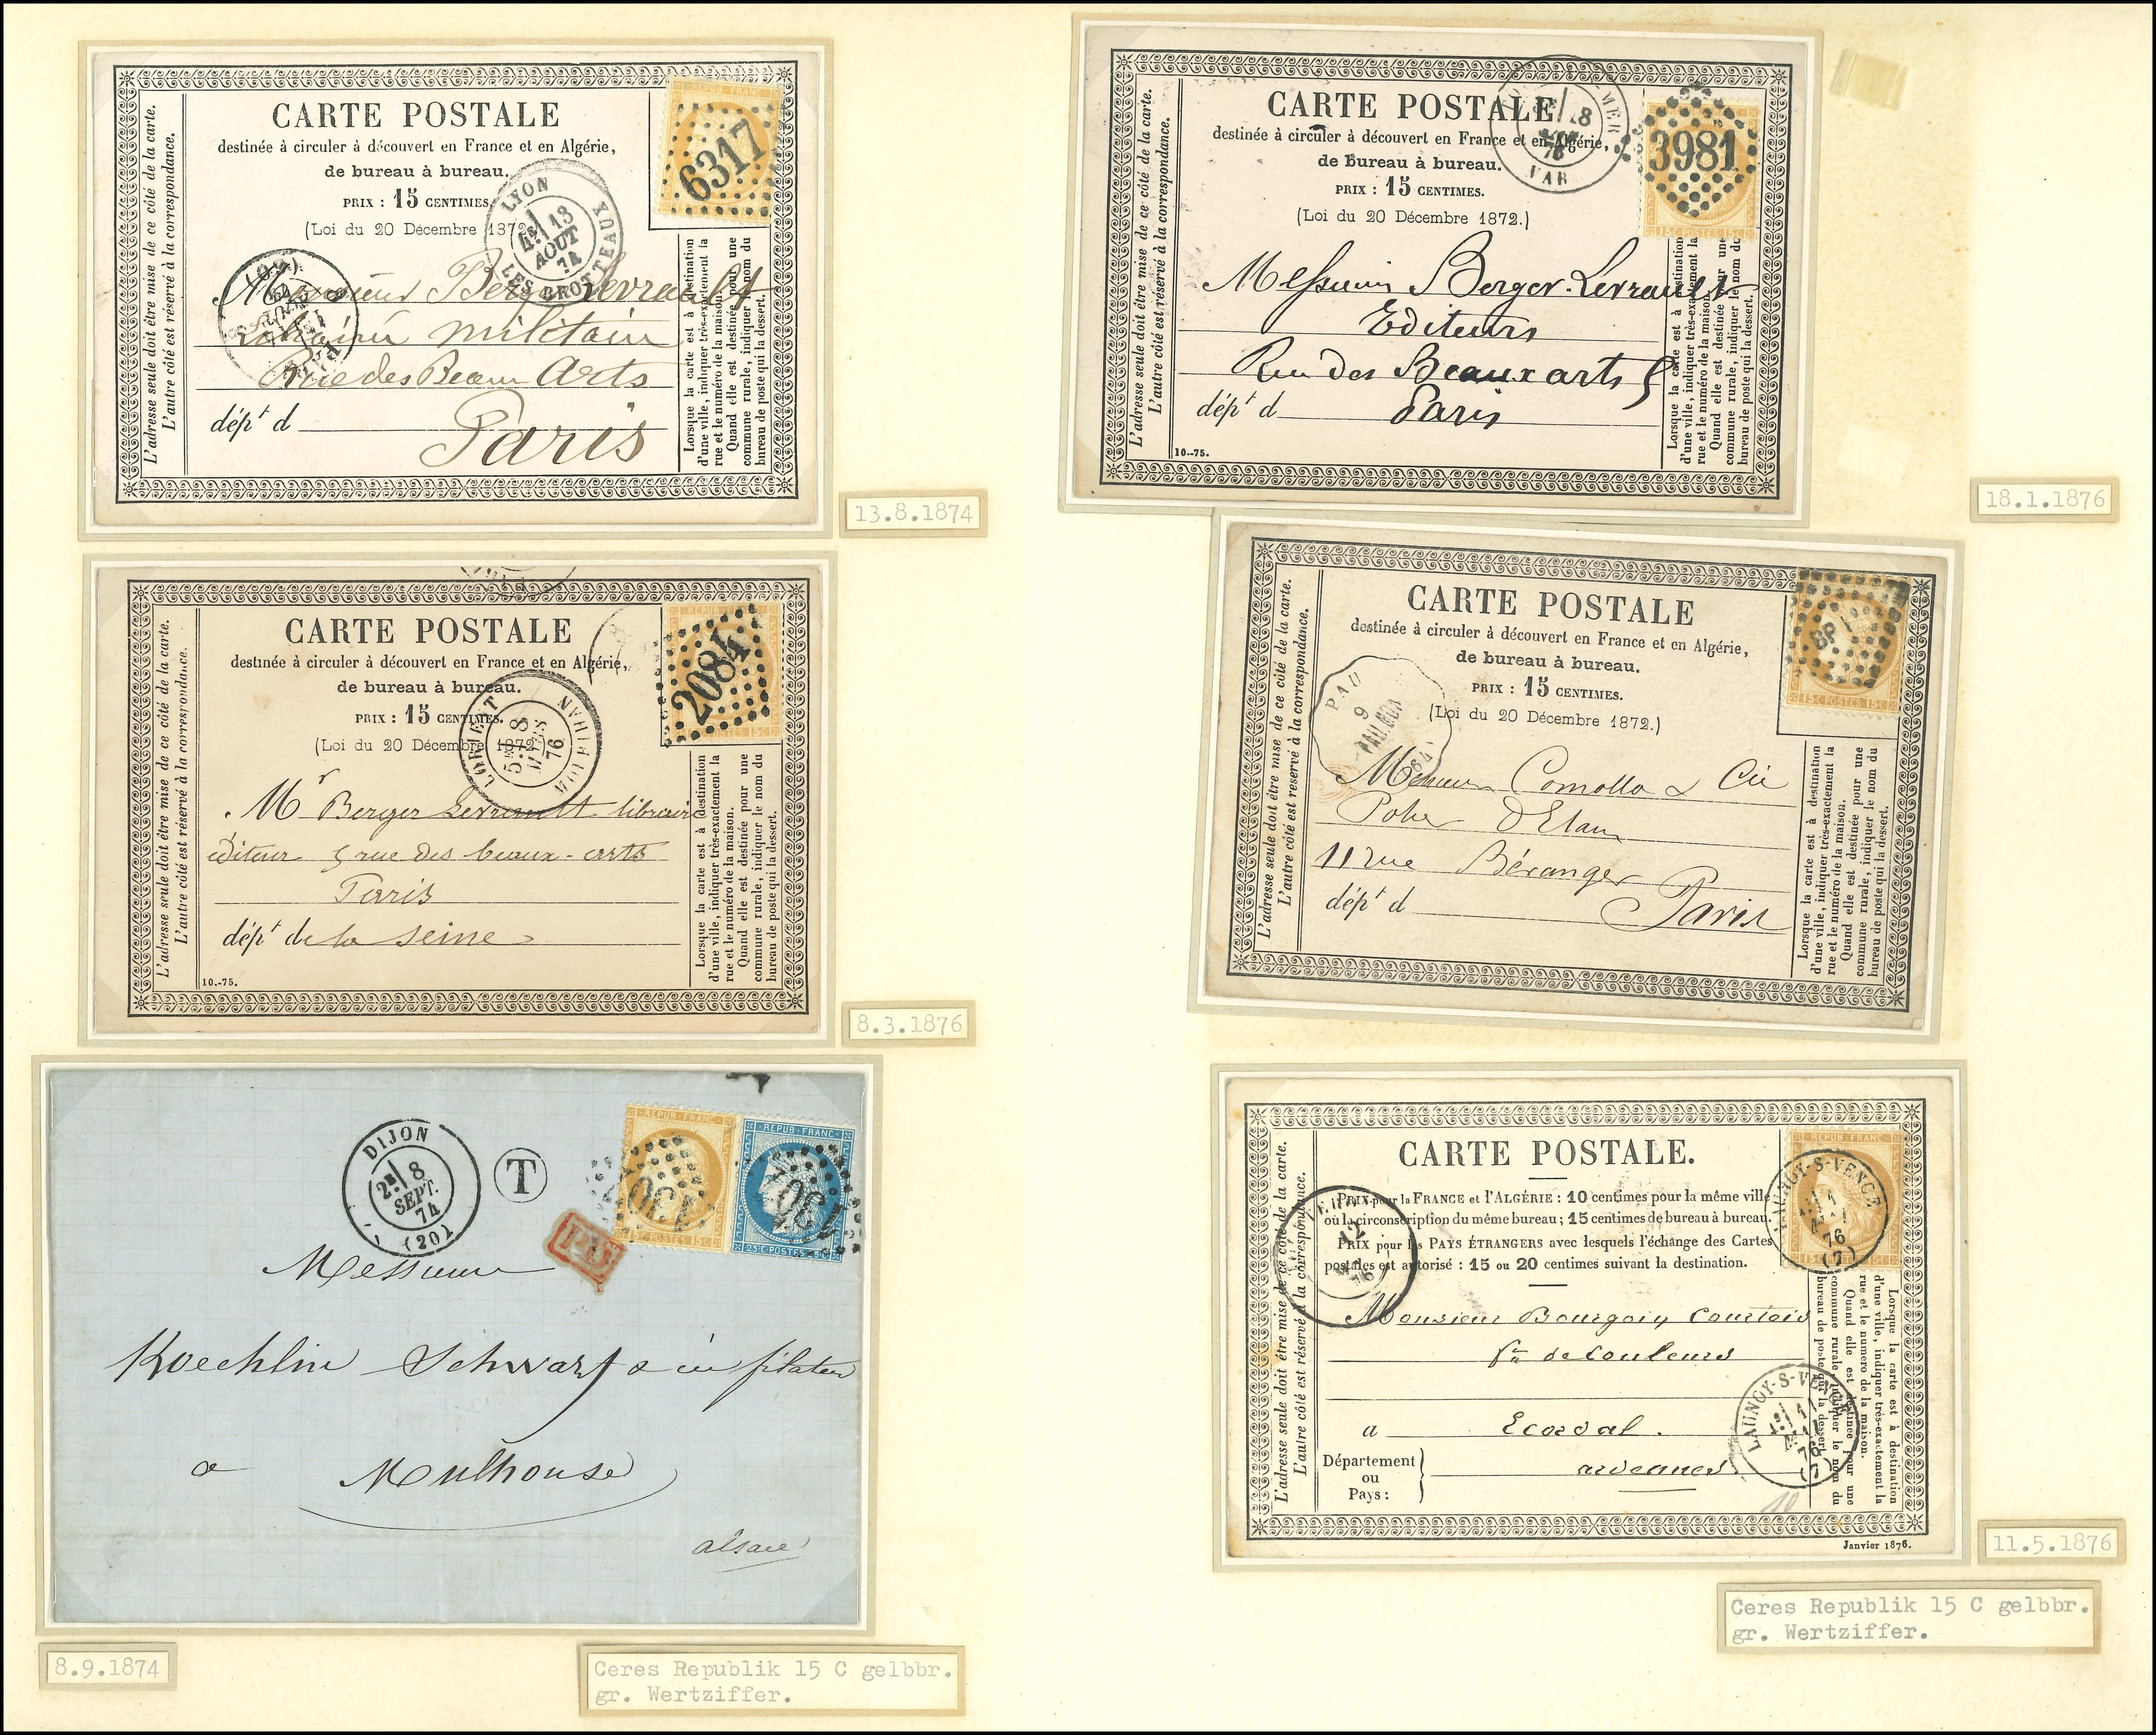 CARTE POSTALE
destinée à circuler à découvert en France et en Algérie,
de bureau à bureau.
PRIX : 15 CENTIMES.
(Loi du 20 Décembre 1872
L'adresse seule doit être mise de ce côté de la carte.
L'autre côté est réservé à la correspondance.
REPUB FRANC
6317
LYON
LES BROTTEAUX
13
AOUT
74
Monsieur Berger Levrault
Libraire militaire
Rue des Beaux Arts
dépt d
Paris
Lorsque la carte est à destination
d'une ville, indiquer très-exactement la
rue et le numéro de la maison.
Quand elle est destinée pour une
commune rurale, indiquer le nom du
bureau de poste qui la dessert.
13.8.1874
CARTE POSTALE
destinée à circuler à découvert en France et en Algérie,
de bureau à bureau.
PRIX : 15 CENTIMES.
(Loi du 20 Décembre 1872)
L'adresse seule doit être mise de ce côté de la carte.
L'autre côté est réservé à la correspondance.
2084
LORIENT
MORBIHAN
5E 8
MARS
76
Mr Berger Levrault libraire
éditeur 5 rue des beaux-arts
Paris
dépt de la Seine
10.-75.
Lorsque la carte est à destination
d'une ville, indiquer très-exactement la
rue et le numéro de la maison.
Quand elle est destinée pour une
commune rurale, indiquer le nom du
bureau de poste qui la dessert.
8.3.1876
DIJON
8
SEPT.
74
(20)
T
P.D.
REPUB FRANC
15 C POSTES 15 C
REPUB FRANC
25 C POSTES 25 C
1307
1307
Messieurs
Koechlin Schwartz & cie filateurs
a Mulhouse
alsace
8.9.1874
Ceres Republik 15 C gelbbr.
gr. Wertziffer.
CARTE POSTALE
destinée à circuler à découvert en France et en Algérie,
de bureau à bureau.
PRIX : 15 CENTIMES.
(Loi du 20 Décembre 1872.)
L'adresse seule doit être mise de ce côté de la carte.
L'autre côté est réservé à la correspondance.
3981
MER
VAR
18
76
15 C POSTES 15 C
Messieurs Berger-Levrault
Editeurs
Rue des Beaux arts 5
dépt d Paris
10.-75.
Lorsque la carte est à destination
d'une ville, indiquer très-exactement la
rue et le numéro de la maison.
Quand elle est destinée pour une
commune rurale, indiquer le nom du
bureau de poste qui la dessert.
18.1.1876
CARTE POSTALE
destinée à circuler à découvert en France et en Algérie,
de bureau à bureau.
PRIX : 15 CENTIMES.
(Loi du 20 Décembre 1872.)
L'adresse seule doit être mise de ce côté de la carte.
L'autre côté est réservé à la correspondance.
BP 1
15 C POSTES 15 C
PAU
9
Messieurs Comolla & Cie
Potier D'Etain
11 rue Béranger
dépt d Paris
Lorsque la carte est à destination
d'une ville, indiquer très-exactement la
rue et le numéro de la maison.
Quand elle est destinée pour une
commune rurale, indiquer le nom du
bureau de poste qui la dessert.
CARTE POSTALE.
PRIX pour la FRANCE et l'ALGÉRIE : 10 centimes pour la même ville
ou la circonscription du même bureau ; 15 centimes de bureau à bureau.
PRIX pour les PAYS ÉTRANGERS avec lesquels l'échange des Cartes
postales est autorisé : 15 ou 20 centimes suivant la destination.
L'adresse seule doit être mise de ce côté de la carte.
L'autre côté est réservé à la correspondance.
REPUB FRANC
LAUNOY-S-VENCE
76
(7)
12
76
Monsieur Bourgoin Courtois
de Couleurs
a Ecordal.
Département
ou
Pays :
ardennes
LAUNOY-S-VENCE
11
76
(7)
Lorsque la carte est à destination
d'une ville, indiquer très-exactement la
rue et le numéro de la maison.
Quand elle est destinée pour une
commune rurale, indiquer le nom du
bureau de poste qui la dessert.
Janvier 1876.
11.5.1876
Ceres Republik 15 C gelbbr.
gr. Wertziffer.